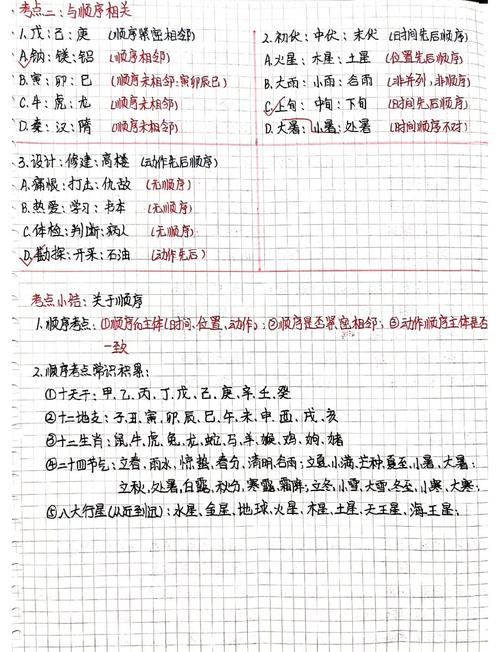 考点二：与顺序相关
1.戊：己：庚 (顺序紧密相邻)
A.钠：镁：铝 (顺序相邻)
B.寅：卯：巳 (顺序未相邻：寅卯辰巳)
C.牛：虎：龙 (顺序未相邻)
D.秦：汉：隋 (顺序未相邻)
2.初伏：中伏：末伏 (时间先后顺序)
A.火星：木星：土星 (位置先后顺序)
B.大雨：小雨：谷雨 (非并列,非顺序)
C.上旬：中旬：下旬 (时间先后顺序)
D.大暑：小暑：处暑 (时间顺序不对)
3.设计：修建：高楼 (动作先后顺序)
A.痛恨：打击：仇敌 (无顺序)
B.热爱：学习：书本 (无顺序)
C.体检：判断：病人 (无顺序)
D.勘探：开采：石油 (动作先后)
考点小结：关于顺序
1.顺序考点：①顺序的主体(时间、位置、动作)；②顺序是否紧密相邻；③动作顺序主体是否
一致
2.顺序考点常识积累：
①十天干：甲、乙、丙、丁、戊、己、庚、辛、壬、癸
②十二地支：子、丑、寅、卯、辰、巳、午、未、申、酉、戌、亥
③十二生肖：鼠、牛、虎、兔、龙、蛇、马、羊、猴、鸡、狗、猪
④二十四节气：立春、雨水、惊蛰、春分、清明、谷雨；立夏、小满、芒种、夏至、小暑、大暑；
立秋、处暑、白露、秋分、寒露、霜降；立冬、小雪、大雪、冬至、小寒、大寒；
⑤八大行星(从近到远)：水星、金星、地球、火星、木星、土星、天王星、海王星；